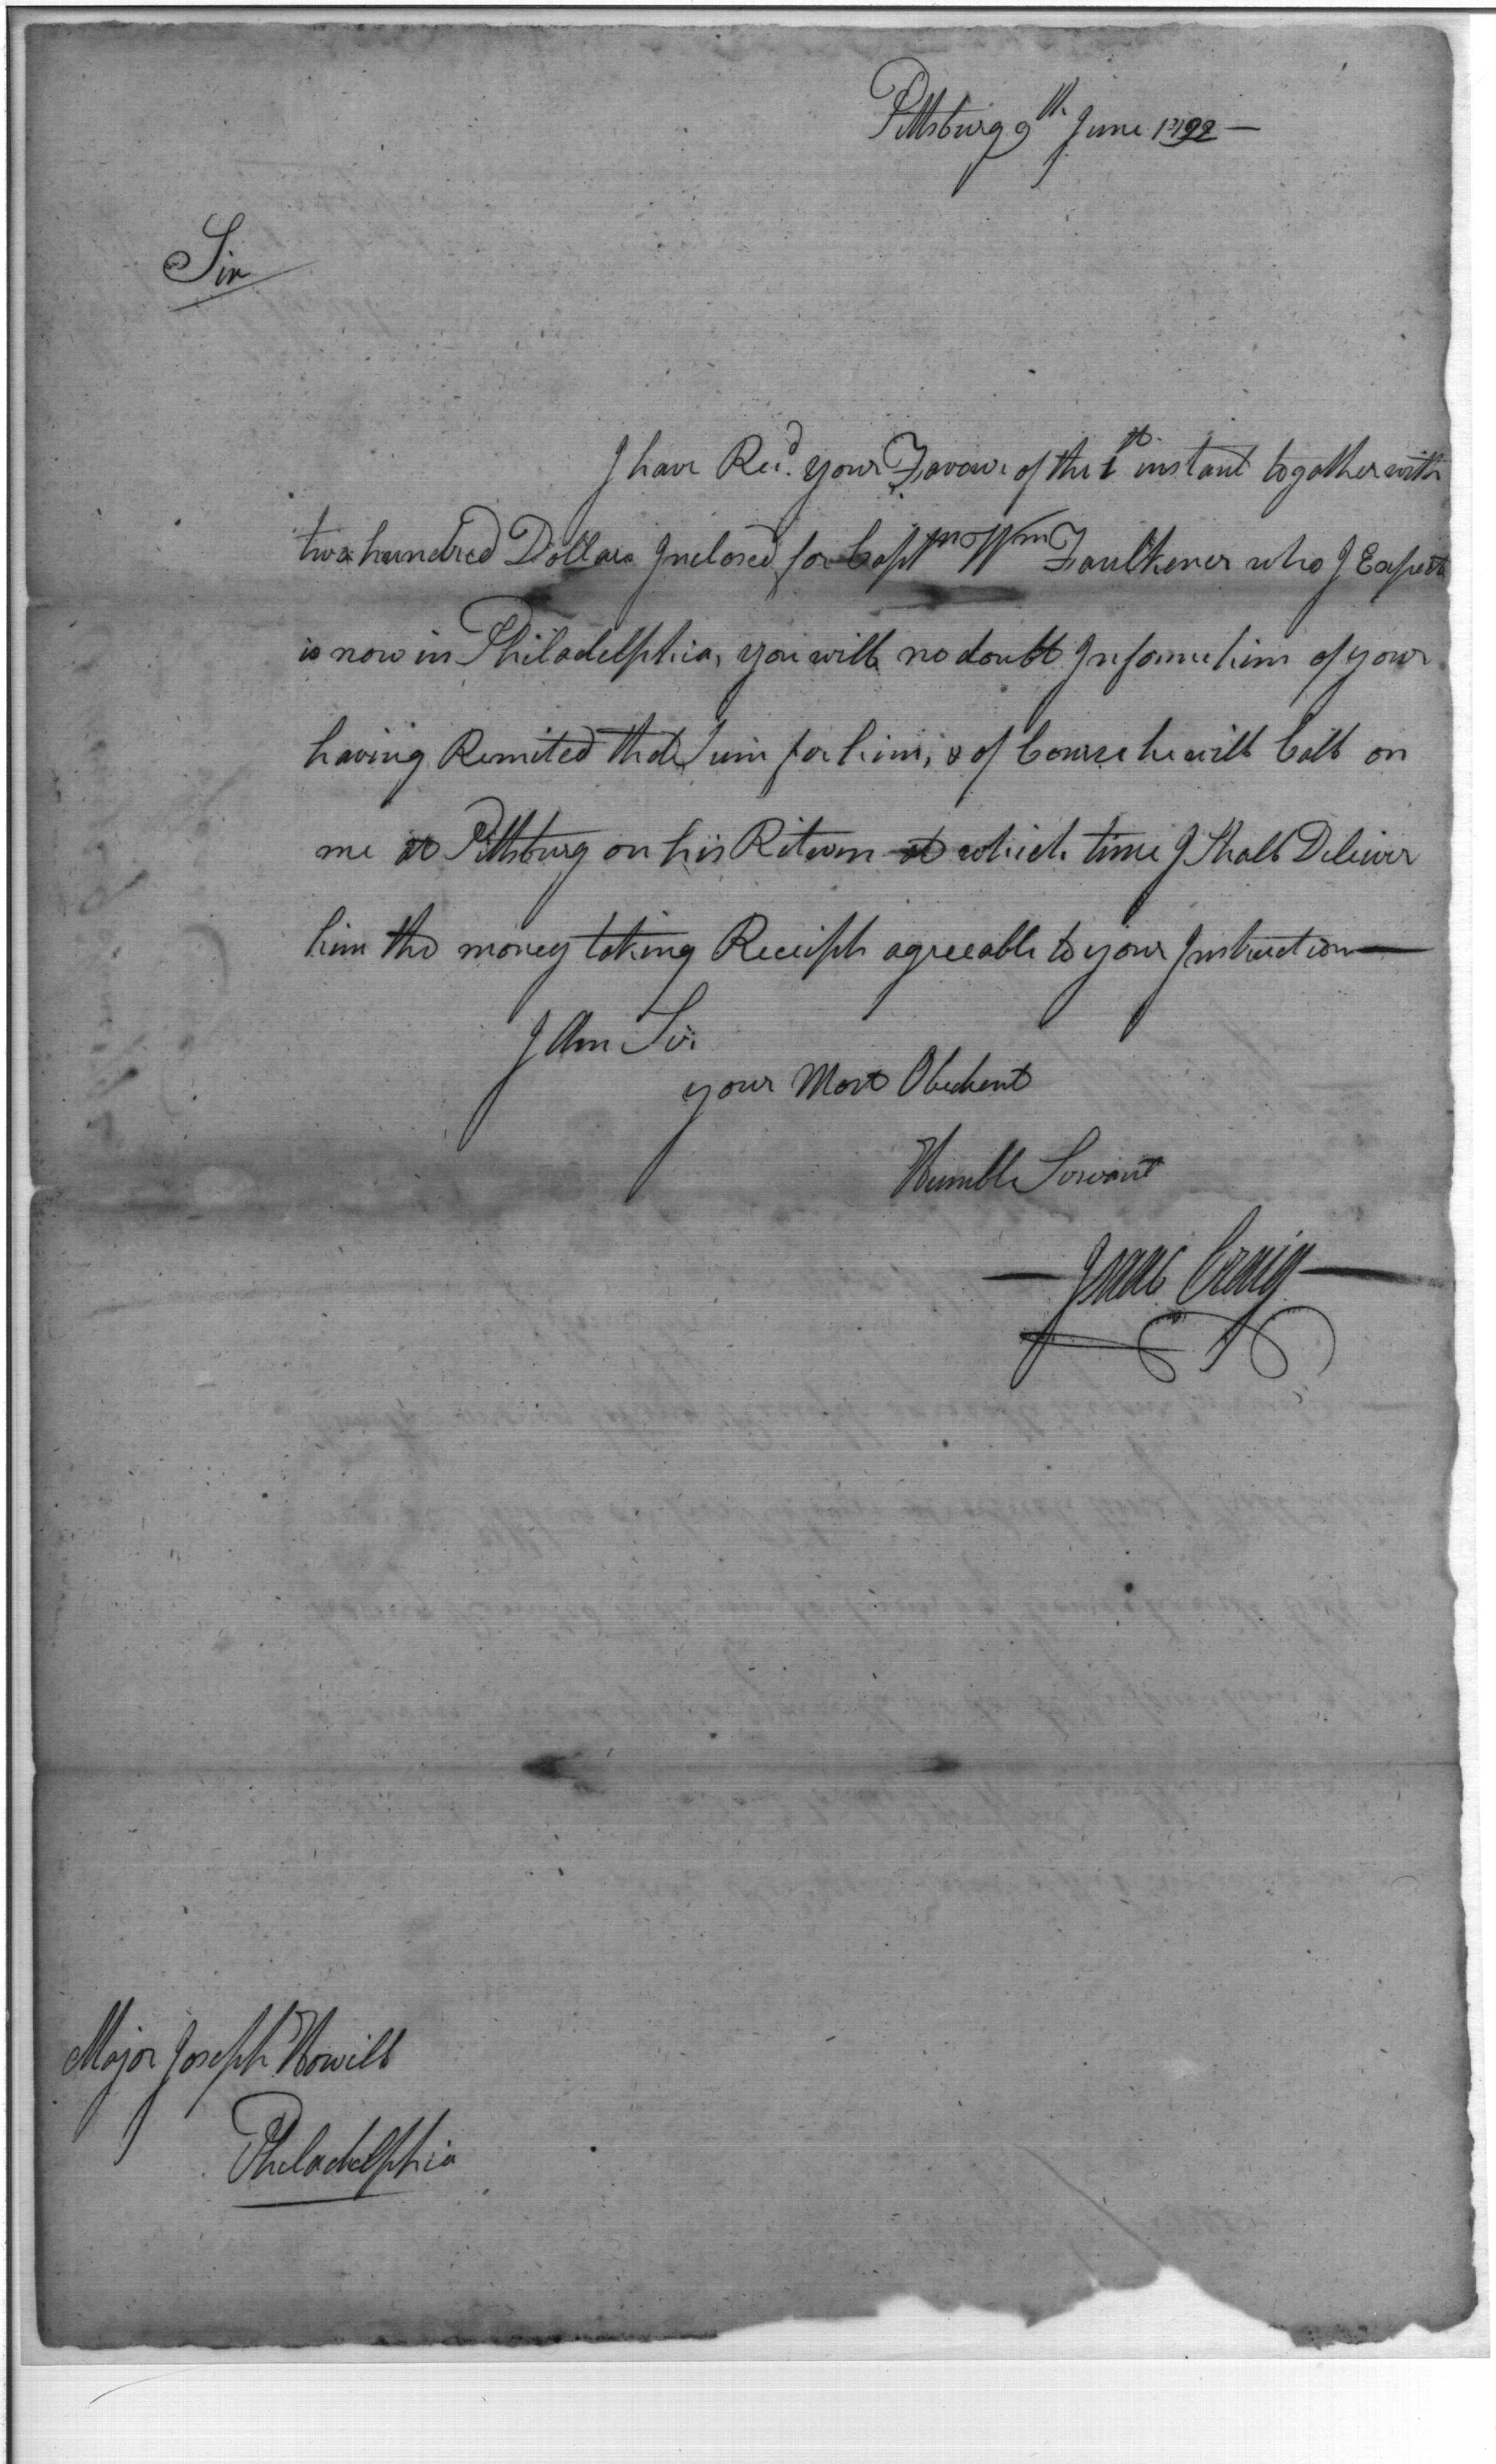 Pittsburg 9th June 1792 —
Sir
I have Recd. your Favour of the 1st instant togather with
two hundred Dollars Inclosed for Captn Wm Faulkener who I Expect
is now in Philadelphia, you will no doubt Inform him of your
having Remited that Sum for him, & of Course he will Call on
me at Pittsburg on his Return at which time I Shall Deliver
him the money taking Receipts agreeable to your Instruction —
I Am Sir
your Most Obedient
Humble Servant
— Isaac Craig —
Major Joseph Howell
Philadelphia